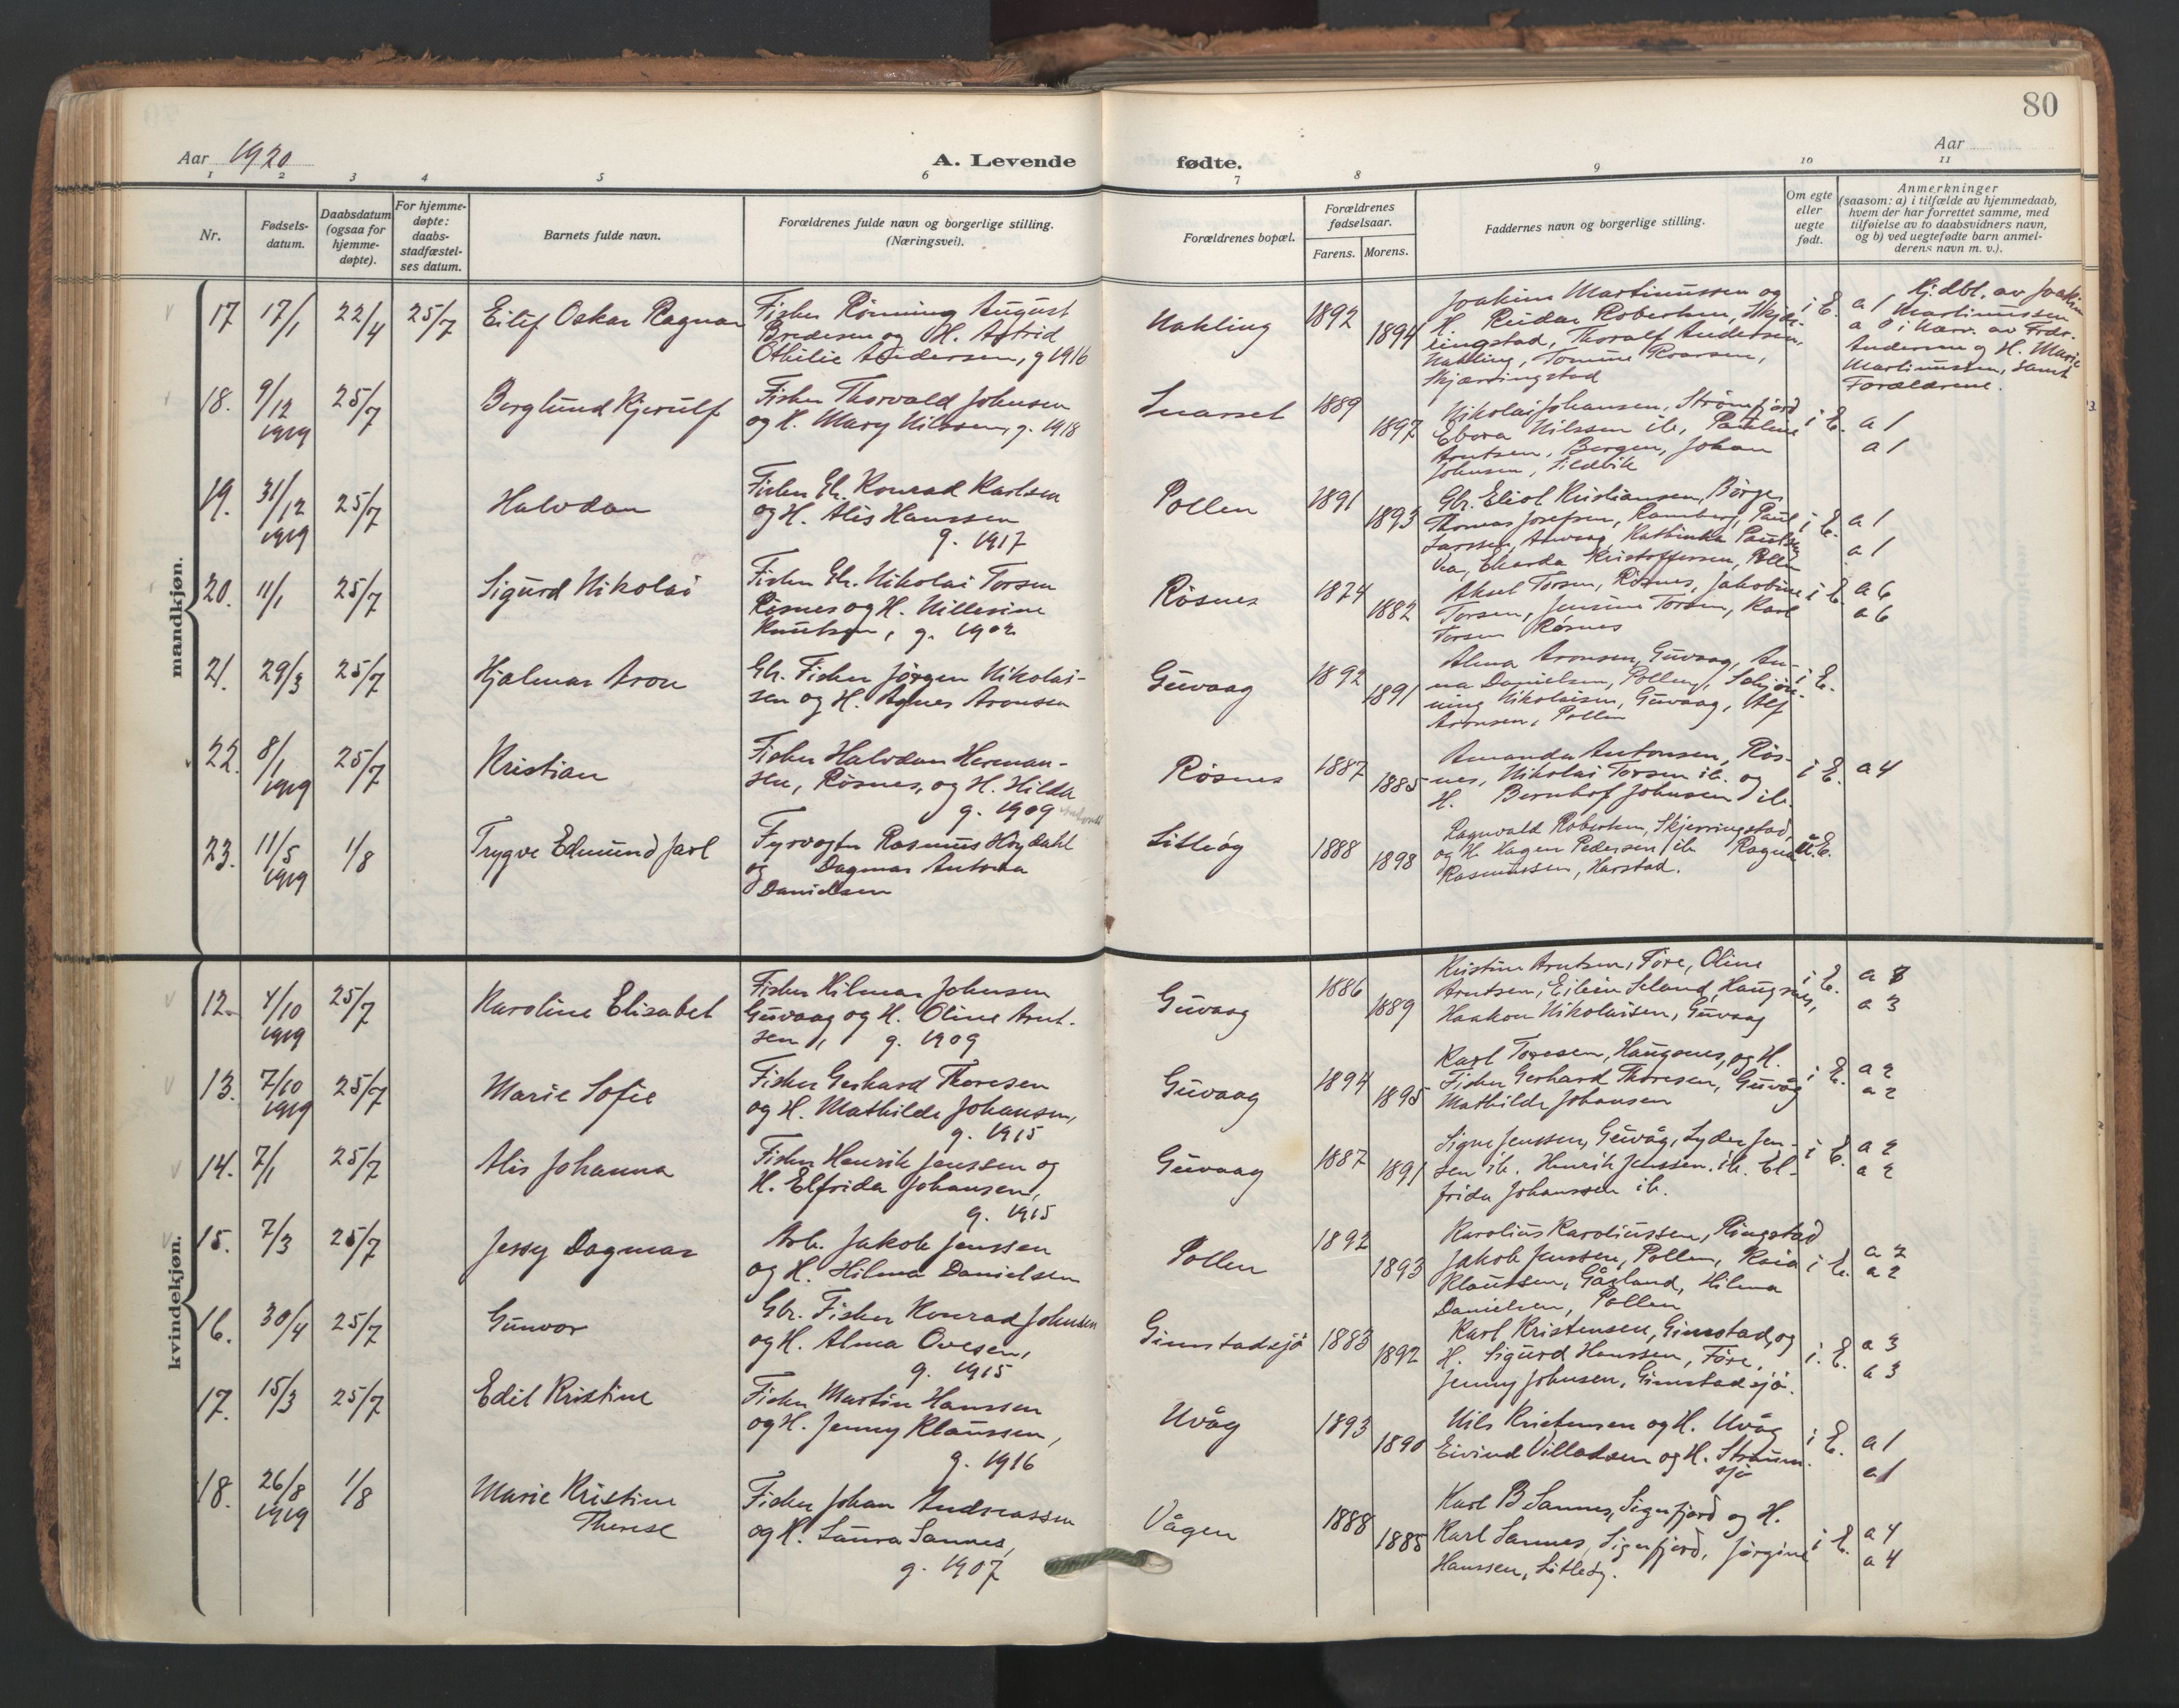 80
Aar 1920
A. Levende
fødte.
Aar
1 2 3 4 5 6 7 8 9 10 11
Nr.
Fødsels-
datum.
Daabsdatum
(ogsaa for
hjemme-
døpte).
For hjemme-
døpte:
daabs-
stadfæstel-
ses datum.
Barnets fulde navn.
Forældrenes fulde navn og borgerlige stilling.
(Næringsvei).
Forældrenes bopæl.
Forældrenes
fødselsaar.
Farens. Morens.
Faddernes navn og borgerlige stilling.
Om egte
eller
uegte
født.
Anmerkninger
(saasom: a) i tilfælde av hjemmedaab,
hvem der har forrettet samme, med
tilføielse av to daabsvidners navn,
og b) ved uegtefødte barn anmel-
derens navn m. v.).
mandkjøn.
17 17/1 22/4 25/7 Eilif Oskar Ragnar
Fisker Rönning August
Bredesen og H. Astrid
Othilie Andersen, g 1916
Nakling 1892 1894
Joakim Martinussen og
H. Reidar Robertsen, Skjær-
ringstad, Thoralf Andersen,
Nakling, Tomine Roarsen,
Skjærringstad
i E. a 1
Hj.dbt. av Joakim
Martinussen
Andersen og H. Marie
Martinussen, samt
Forældrene.
18. 9/12 1919 25/7 Berglund Kjerulf
Fisker Thorvald Johnsen
og H. Mary Nilssen, g. 1918
Snarset 1889 1897
Nikolai Johansen, Strömfjord
Ebora Nilssen ib, Pauline
Arntsen, Borgen, Johan
Johnsen, Sildvik
i E. a 1
a 1
19. 31/12 1919 25/7 Halvdan
Fisker Gbr. Konrad Karlsen
og H. Alis Hanssen
g. 1917
Pollen 1891 1893
Gbr. Eliot Kristiansen, Börge
Thomas Josefsen, Ramberg, Paul
Larssen, Kathinka Paulsen
Kristoffersen, Pollen
i E. a 1
a 1
20. 11/1 25/7 Sigurd Nikolai
Fisker Gbr. Nikolai Torsen
Rösnes og H. Nillesine
Knutsen, g. 1902
Rösnes 1874 1882
Aksel Torsen, Rösnes, Jakobine
Torsen, Jensine Torsen, Karl
Torsen Rösnes
i E. a 6
a 6
21. 29/3 25/7 Hjalmar Aron
Gbr. Fisker Jörgen Nikolai-
sen og H. Agnes Aronsen
Guvaag 1892 1891
Alma Aronsen, Guvaag, An-
na Danielsen, Pollen, Schjön-
ning Nikolaisen, Guvaag, Alf
Aronsen, Pollen
i E.
22. 8/1 1919 25/7 Kristian
Fisker Halvdan Herman-
sen, Rösnes, og H. Hilda
g. 1909
Rösnes 1887 1885
Amanda Antonsen, Rös-
nes, Nikolai Torsen ib. og
H. Bernhof Johnsen ib.
i E. a 4
23. 11/5 1919 1/8 Trygve Edmund Jarl
Fyrvogter Rasmus Höydahl
og Dagmar Antona
Danielsen
Litleöy 1888 1898
Ragnvald Robertsen, Skjerringstad,
og H. Hagen Pedersen ib Ragna
Rasmussen, Harstad.
u.E.
kvindekjøn.
12. 4/10 1919 25/7 Karoline Elisabet
Fisker Hilmar Johnsen
Guvaag og H. Oline Arnt-
sen, g. 1909
Guvaag 1886 1889
Kristine Arntsen, Före, Oline
Arntsen, Eilein Seland, Haugsnes,
Haakon Nikolaisen, Guvaag
i E. a 3
a 3
13. 7/10 1919 25/7 Marie Sofie
Fisker Gerhard Thoresen
og H. Mathilde Johansen,
g. 1915
Guvaag 1894 1895
Karl Toresen, Haugsnes, og H.
Fisker Gerhard Thoresen, Guvåg
Mathilde Johansen
i E. a 2
a 2
14. 7/1 25/7 Alis Johanna
Fisker Henrik Jenssen og
H. Elfrida Johansen,
g. 1915
Guvaag 1887 1891
Signe Jenssen, Guvåg, Lyder Jen-
sen ib. Henrik Jenssen ib. El-
frida Johanssen ib.
i E. a 2
a 2
15. 7/3 25/7 Jessy Dagmar
Arb. Jakob Jenssen
og H. Hilma Danielsen
Pollen 1892 1893
Karolius Karoliussen, Ringstad
Jakob Jenssen, Pollen, Kaia
Klaussen, Gåsland, Hilma
Danielsen, Pollen
i E. a 2
a 2
16. 30/4 25/7 Gunvor
Gbr. Fisker Konrad Johnsen
og H. Alma Ovesen,
g. 1915
Gimstadsjö 1883 1892
Karl Kristensen, Gimstad, og
H. Sigurd Hanssen, Före,
Jenny Johnsen, Gimstadsjö.
i E. a 3
a 3
17. 15/3 25/7 Edit Kristine
Fisker Martin Hanssen
og H. Jenny Klaussen,
g. 1916
Uvåg 1893 1890
Nils Kristensen og H. Uvåg
Eivind Villadsen og H. Straum-
sjö
i E. a 1
a 1
18. 26/8 1919 1/8 Marie Kristine
Therese
Fisker Johan Andreassen
og H. Laura Sannes,
g. 1907
Vågen 1888 1885
Karl B Sannes, Sigerfjord og H.
Karl Sannes, Sigerfjord, Jörgine
Hanssen, Litleöy.
i E. a 4
a 4